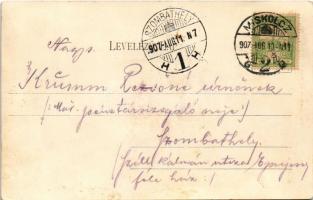 SZOMBATHELY
907 AUG 11 N7
1
MISKOLCZ
907 AUG 11
LEVELEZ
Nagys.
Krumm Rezsőné úrnőnek
(Máv. pénztárvizsgáló neje)
Szombathely.
(Széll Kálmán utcza
féle ház.)